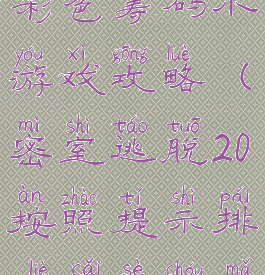 彩色筹码木
yóu xì gōng lüè
游戏攻略（
mì shì táo tuō
密室逃脱20
àn zhào tí shì pái
按照提示排
liè cǎi sè chóu mǎ